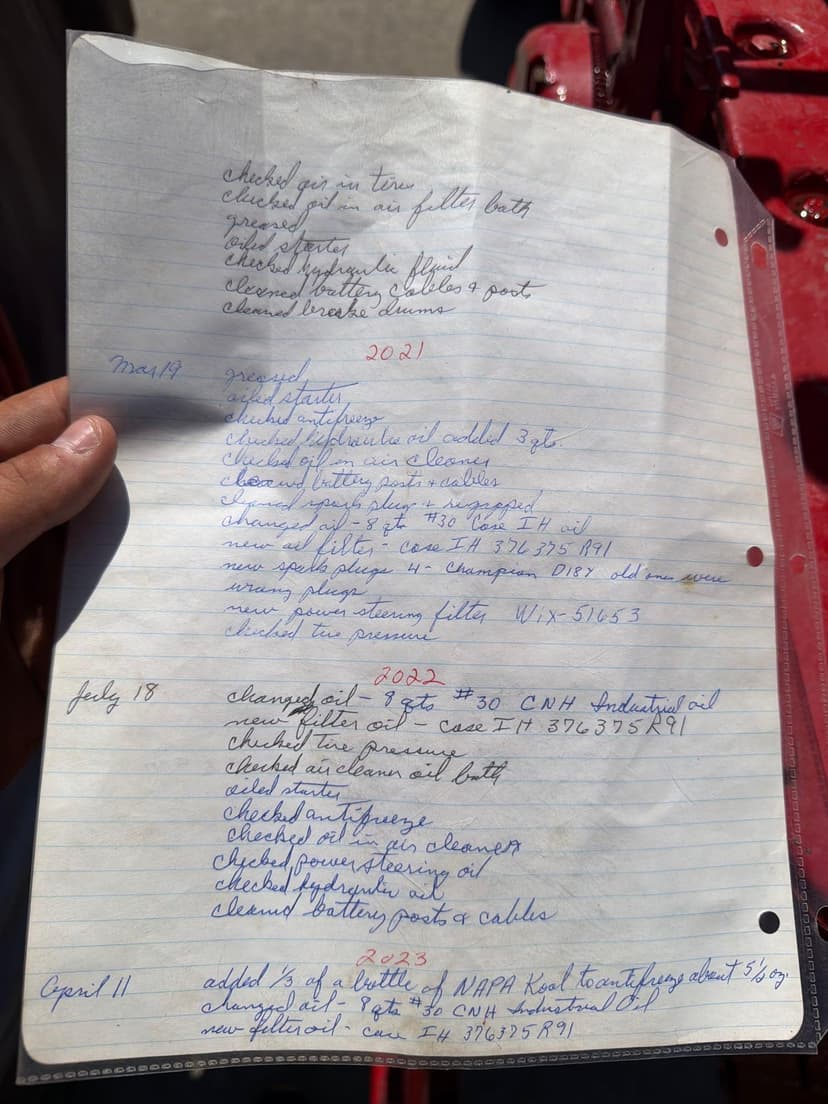 checked air in tires
checked oil in air filter bath
greased
oiled starter
checked hydraulic fluid
cleaned battery cables & posts
cleaned brake drums
2021
Mar 19 greased
oiled starter
checked antifreeze
checked hydraulic oil added 3 qts.
checked oil in air cleaner
cleaned battery posts + cables
cleaned spark plugs + regapped
changed oil - 8 qts #30 Case IH oil
new oil filter - case IH 376375 R91
new spark plugs 4 - Champion D18Y old ones were
wrong plugs
new power steering filter Wix-51653
checked tire pressure
2022
July 18 changed oil - 8 qts #30 CNH Industrial oil
new filter oil - case IH 376375R91
checked tire pressure
checked air cleaner oil bath
oiled starter
checked antifreeze
checked oil in air cleaner
checked power steering oil
checked hydraulic oil
cleaned battery posts & cables
2023
April 11 added 1/3 of a bottle of NAPA Kool to antifreeze about 5 1/3 oz.
changed oil - 8 qts #30 CNH Industrial Oil
new filter oil - case IH 376375R91